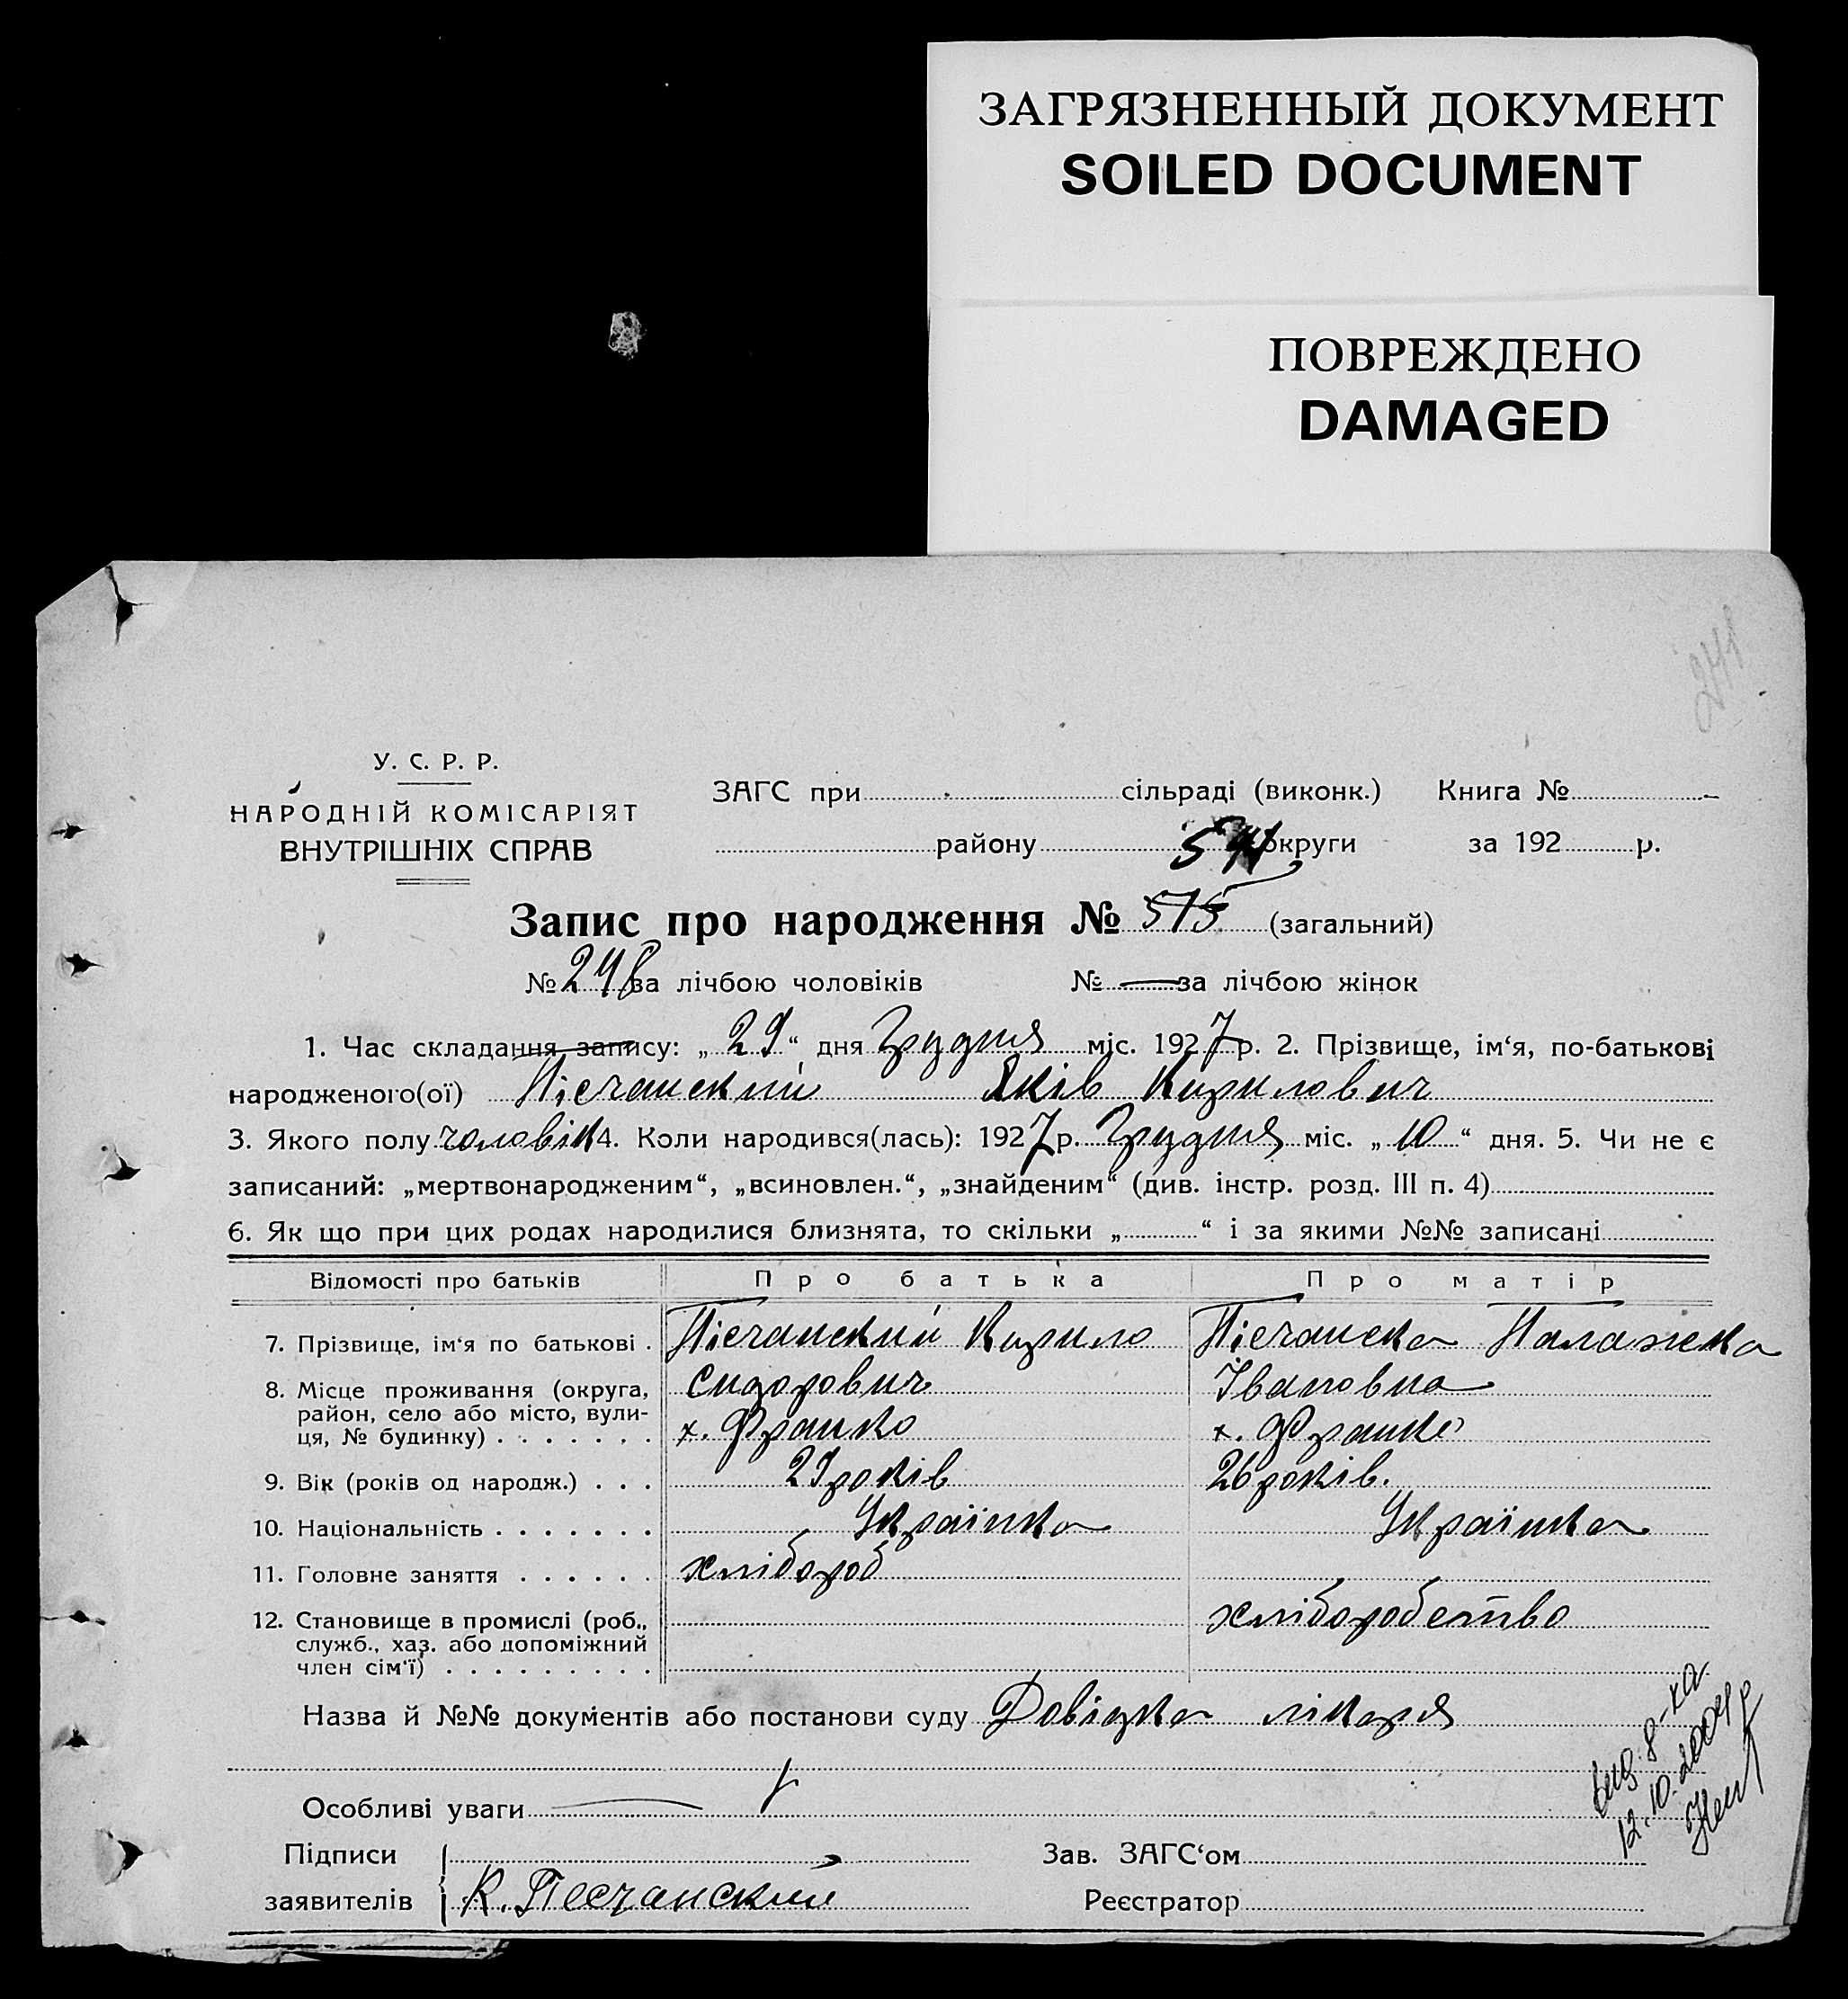 ЗАГРЯЗНЕННЫЙ ДОКУМЕНТ
SOILED DOCUMENT
ПОВРЕЖДЕНО
DAMAGED
241
У. С. Р. Р.
НАРОДНІЙ КОМІСАРІЯТ
ВНУТРІШНІХ СПРАВ
ЗАГС при сільраді (виконк.) Книга №
району округи за 192 р.
Запис про народження № 575 (загальний)
№ 248 за лічбою чоловіків № — за лічбою жінок
1. Час складання запису: „29“ дня Грудня міс. 1927 р. 2. Прізвище, ім‘я, по-батькові
народженого(ої) Пісчанский Яків Кирилович
3. Якого полу чоловік 4. Коли народився(лась): 1927 р. Грудня міс. „10“ дня. 5. Чи не є
записаний: „мертвонародженим“, „всиновлен.“, „знайденим“ (див. інстр. розд. III п. 4)
6. Як що при цих родах народилися близнята, то скільки „ “ і за якими №№ записані
Відомості про батьків Про батька Про матір
7. Прізвище, ім‘я по батькові . Пісчанский Кирило Пісчанска Палажка
8. Місце проживання (округа, Сидорович Івановна
район, село або місто, вули-
ця, № будинку) . . . . . . . х. Франко х. Франко
9. Вік (років од народж.) . . . 29 років 26 років.
10. Національність . . . . . . . Українка Українка
11. Головне заняття . . . . . . хлібороб
12. Становище в промислі (роб., хліборобство
служб., хаз. або допоміжний
член сім‘ї) . . . . . . . . .
Назва й №№ документів або постанови суду Довідка лікаря
Особливі уваги —
Підписи Зав. ЗАГС‘ом
заявителів К. Песчанский Реєстратор
12.10.2004р